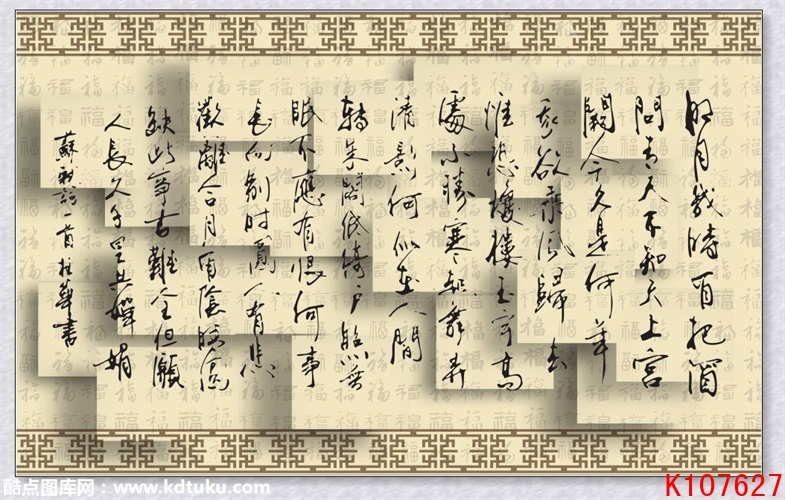 明月幾時有把酒
問青天不知天上宮
闕今夕是何年
我欲乘風歸去
惟恐瓊樓玉宇高
處不勝寒起舞弄
清影何似在人間
轉朱閣低綺戶照無
眠不應有恨何事
長向別時圓人有悲
歡離合月有陰晴圓
缺此事古難全但願
人長久千里共嬋娟
蘇軾詞一首杜華書
酷点图库网：www.kdtuku.com
K107627